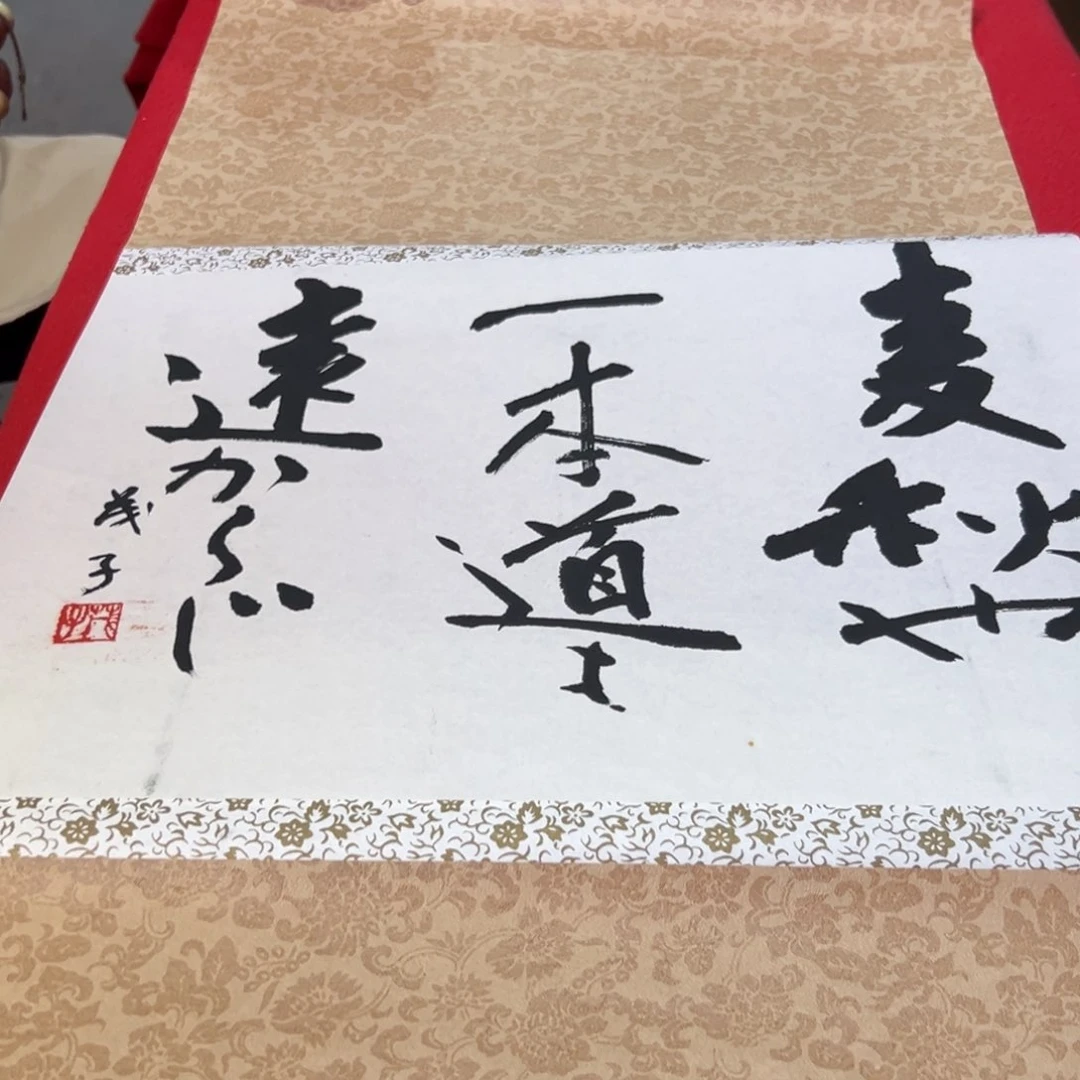 麦秋や
一本道
遠からじ
茂子